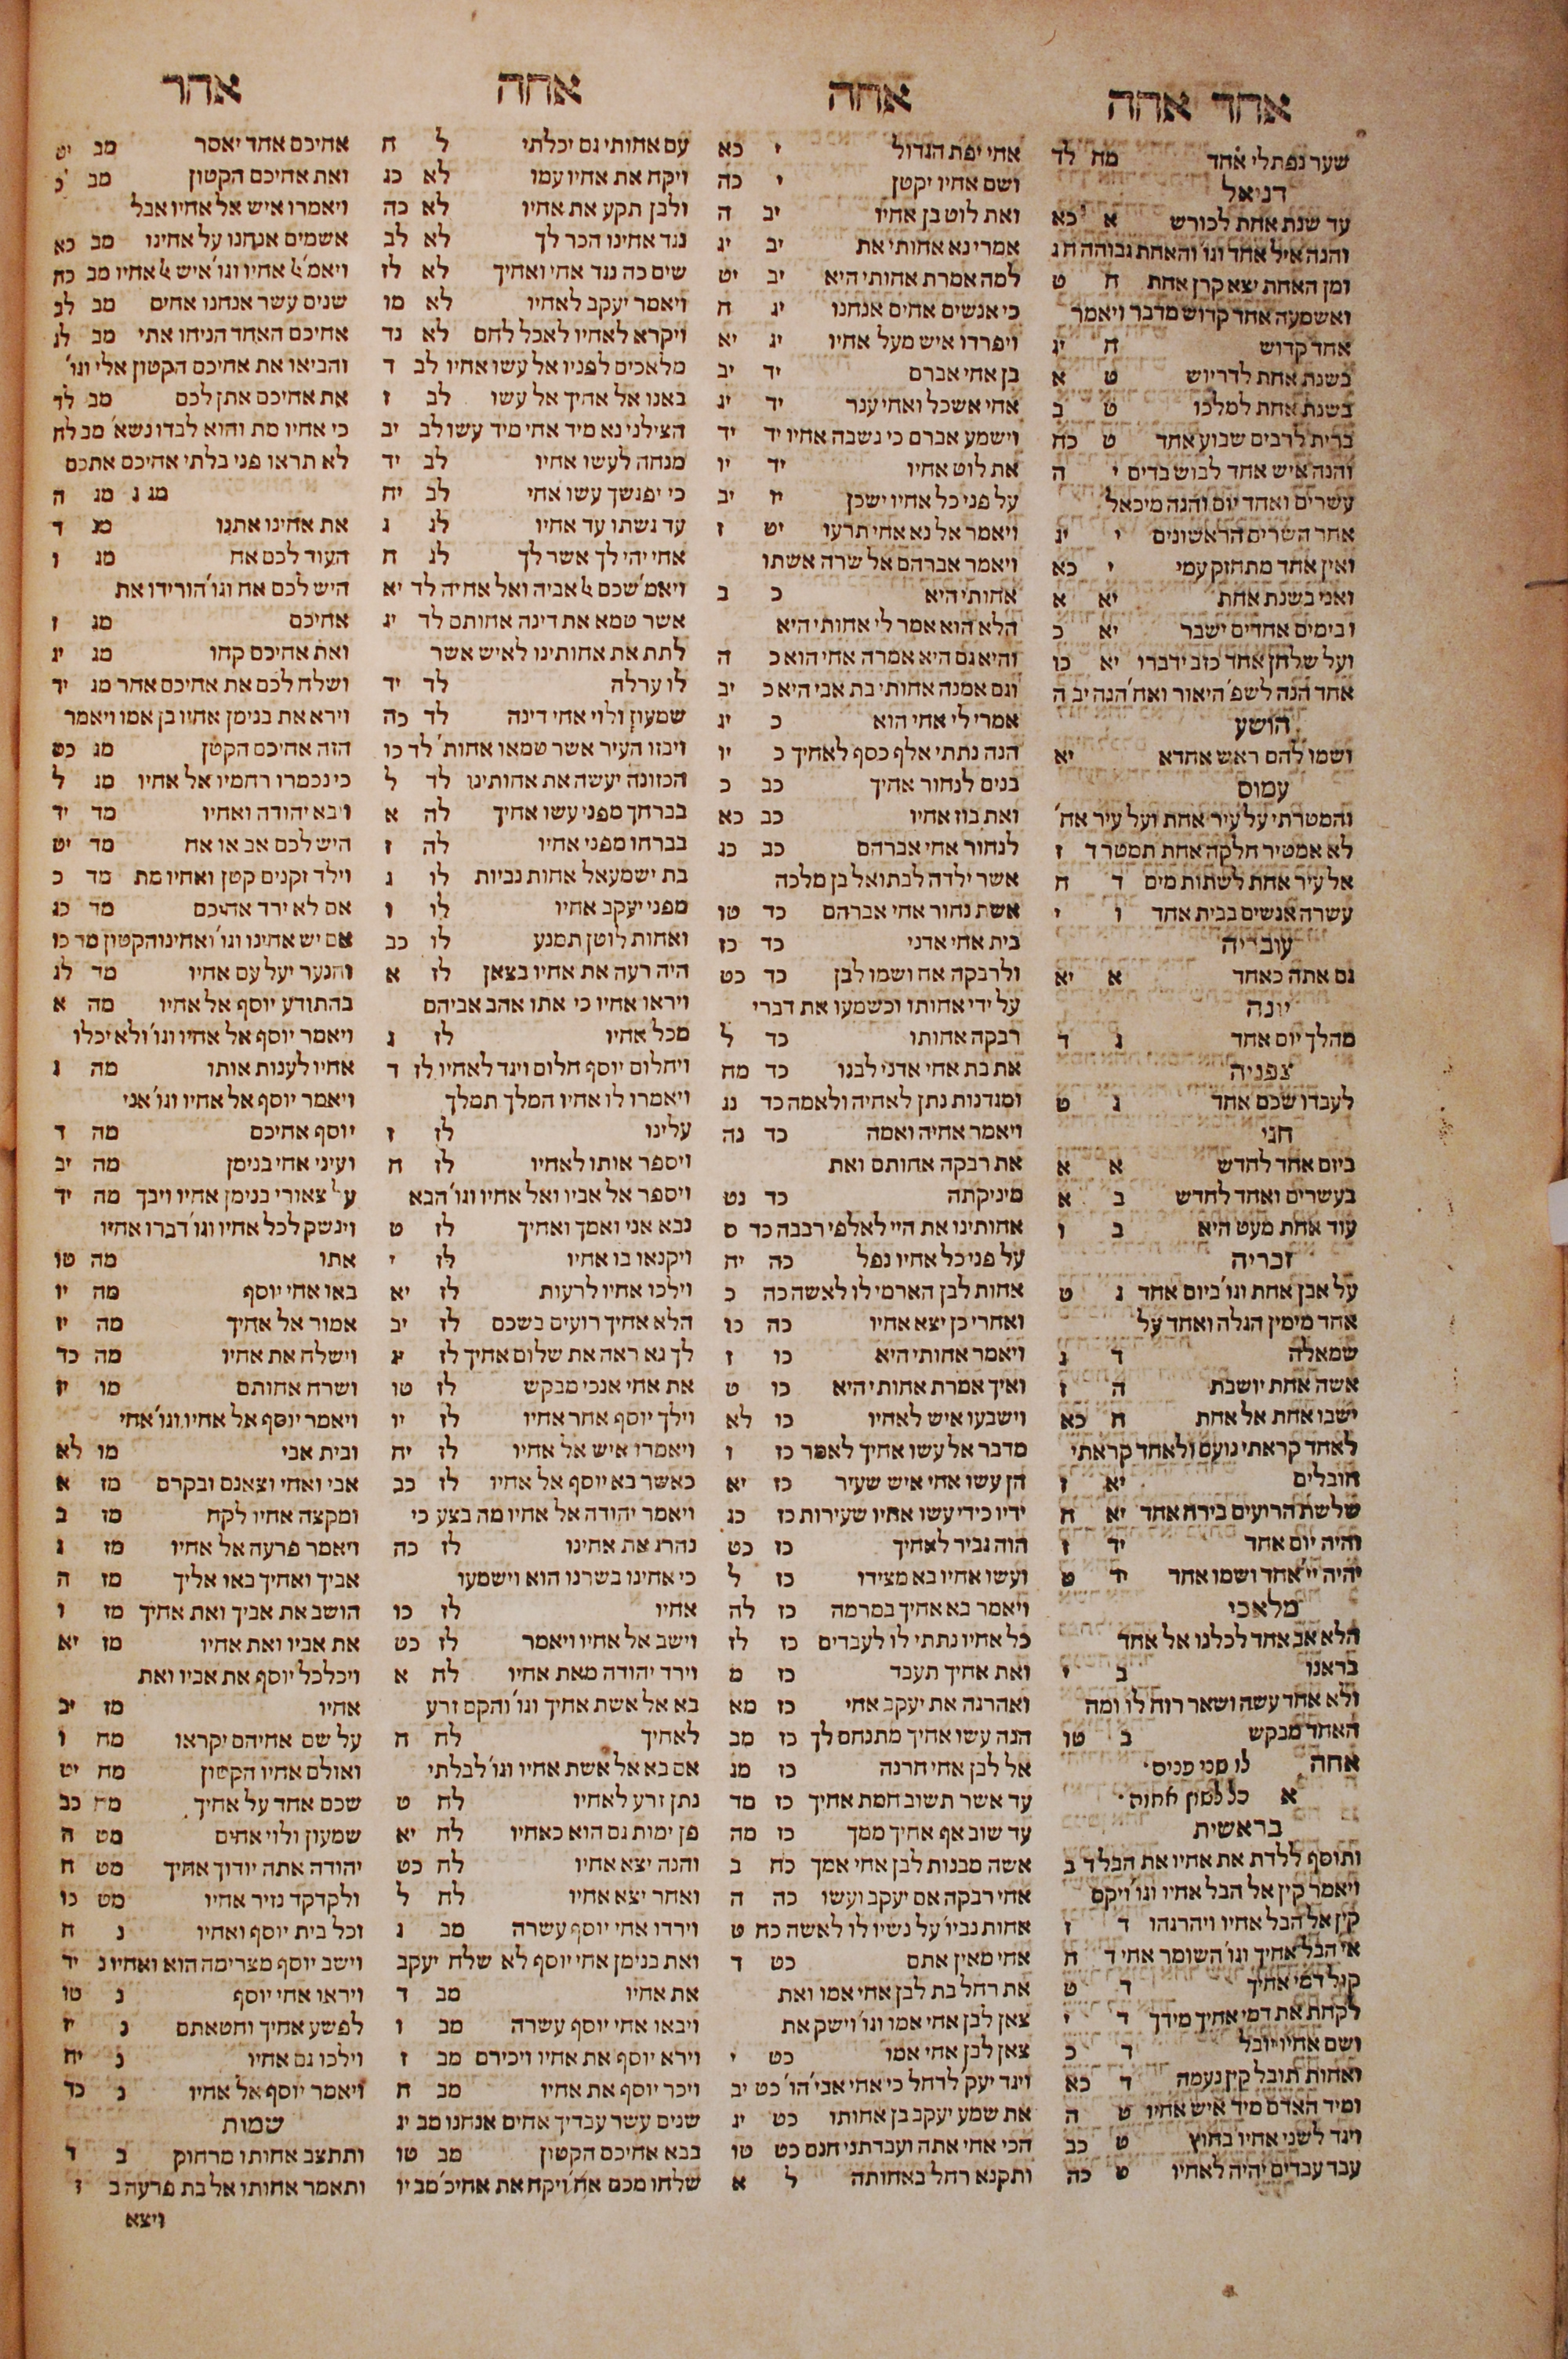 אחד אחה
שער נפתלי אחד מח לד
דניאל
עד שנת אחת לכורש א כא
והנה איל אחד וגו' והאחת גבוהה ח ג
ומן האחת יצא קרן אחת ח ט
ואשמעה אחד קדוש מדבר ויאמר
אחד קדוש ח יג
בשנת אחת לדריוש ט א
בשנת אחת למלכו ט ב
ברית לרבים שבוע אחד ט כח
והנה איש אחד לבוש בדים י ה
עשרים ואחד יום והנה מיכאל
אחד השרים הראשונים י יג
ואין אחד מתחזק עמי י כא
ואני בשנת אחת יא א
ובימים אחדים ישבר יא כ
ועל שלחן אחד כזב ידברו יא כו
אחד הנה לשפ' היאור ואח' הנה יב ה
הושע
ושמו להם ראש אחד א יא
עמוס
והמטרתי על עיר אחת ועל עיר אח'
לא אמטיר חלקה אחת תמטר ד ז
אל עיר אחת לשתות מים ד ח
עשרה אנשים בבית אחד ו י
עובדיה
גם אתה כאחד א יא
יונה
מהלך יום אחד ג ד
צפניה
לעבדו שכם אחד ג ט
חגי
ביום אחד לחדש א א
בעשרים ואחד לחדש ב א
עוד אחת מעט היא ב ו
זכריה
על אבן אחת וגו' ביום אחד ג ט
אחד מימין הגלה ואחד על
שמאלה ד ג
אשה אחת יושבת ה ז
ישבו אחת אל אחת ח כא
לאחד קראתי נועם ולאחד קראתי
חובלים יא ז
שלשת הרועים בירח אחד יא ח
והיה יום אחד יד ז
יהיה יי' אחד ושמו אחד יד ט
מלאכי
הלא אב אחד לכלנו אל אחד
בראנו ב י
ולא אחד עשה ושאר רוח לו ומה
האחד מבקש ב טו
אחה לו שני פנים.
א כל לשון אחוה.
בראשית
ותוסף ללדת את אחיו את הבל ד ב
ויאמר קין אל הבל אחיו וגו' ויקם
קין אל הבל אחיו ויהרגהו ד ז
אי הבל אחיך וגו' השומר אחי ד ח
קול דמי אחיך ד ט
לקחת את דמי אחיך מידך ד י
ושם אחיו יובל ד כ
ואחות תובל קין נעמה ד כא
ומיד האדם מיד איש אחיו ט ה
ויגד לשני אחיו בחוץ ט כב
עבד עבדים יהיה לאחיו ט כה
אחה
אחי יפת הגדול י כא
ושם אחיו יקטן י כה
ואת לוט בן אחיו יב ה
אמרי נא אחותי את יב יג
למה אמרת אחותי היא יב יט
כי אנשים אחים אנחנו יג ח
ויפרדו איש מעל אחיו יג יא
בן אחי אברם יד יב
אחי אשכל ואחי ענר יד יג
וישמע אברם כי נשבה אחיו יד יד
את לוט אחיו יד יו
על פני כל אחיו ישכן יז יב
ויאמר אל נא אחי תרעו יט ז
ויאמר אברהם אל שרה אשתו
אחותי היא כ ב
הלא הוא אמר לי אחותי היא
והיא גם היא אמרה אחי הוא כ ה
וגם אמנה אחותי בת אבי היא כ יב
אמרי לי אחי הוא כ יג
הנה נתתי אלף כסף לאחיך כ יו
בנים לנחור אחיך כב כ
ואת בוז אחיו כב כא
לנחור אחי אברהם כב כג
אשר ילדה לבתואל בן מלכה
אשת נחור אחי אברהם כד טו
בית אחי אדני כד כז
ולרבקה אח ושמו לבן כד כט
על ידי אחותו וכשמעו את דברי
רבקה אחותו כד ל
את בת אחי אדני לבנו כד מח
ומגדנות נתן לאחיה ולאמה כד נג
ויאמר אחיה ואמה כד נה
את רבקה אחותם ואת
מיניקתה כד נט
אחותינו את היי לאלפי רבבה כד ס
על פני כל אחיו נפל כה יח
אחות לבן הארמי לו לאשה כה כ
ואחרי כן יצא אחיו כה כו
ויאמר אחותי היא כו ז
ואיך אמרת אחותי היא כו ט
וישבעו איש לאחיו כו לא
מדבר אל עשו אחיך לאמר כז ו
הן עשו אחי איש שעיר כז יא
ידיו כידי עשו אחיו שעירות כז כג
הוה גביר לאחיך כז כט
ועשו אחיו בא מצידו כז ל
ויאמר בא אחיך במרמה כז לה
כל אחיו נתתי לו לעבדים כז לז
ואת אחיך תעבד כז מ
ואהרגה את יעקב אחי כז מא
הנה עשו אחיך מתנחם לך כז מב
אל לבן אחי חרנה כז מג
עד אשר תשוב חמת אחיך כז מד
עד שוב אף אחיך ממך כז מה
אשה מבנות לבן אחי אמך כח ב
אחי רבקה אם יעקב ועשו כה ה
אחות נביו' על נשיו לו לאשה כח ט
אחי מאין אתם כט ד
את רחל בת לבן אחי אמו ואת
צאן לבן אחי אמו וגו' וישק את
צאן לבן אחי אמו כט י
ויגד יעק' לרחל כי אחי אבי' הו' כט יב
את שמע יעקב בן אחותו כט יג
הכי אחי אתה ועבדתני חנם כט טו
ותקנא רחל באחותה ל א
אחה
עם אחותי גם יכלתי ל ח
ויקח את אחיו עמו לא כג
ולבן תקע את אחיו לא כה
נגד אחינו הכר לך לא לב
שים כה נגד אחי ואחיך לא לז
ויאמר יעקב לאחיו לא מו
ויקרא לאחיו לאכל לחם לא נד
מלאכים לפניו אל עשו אחיו לב ד
באנו אל אחיך אל עשו לב ז
הצילני נא מיד אחי מיד עשו לב יב
מנחה לעשו אחיו לב יד
כי יפגשך עשו אחי לב יח
עד גשתו עד אחיו לג ג
אחי יהי לך אשר לך לג ח
ויאמ' שכם אל אביה ואל אחיה לד יא
אשר טמא את דינה אחותם לד יג
לתת את אחותינו לאיש אשר
לו ערלה לד יד
שמעון ולוי אחי דינה לד כה
ויבזו העיר אשר טמאו אחות' לד כו
הכזונה יעשה את אחותינו לד ל
בברחך מפני עשו אחיך לה א
בברחו מפני אחיו לה ז
בת ישמעאל אחות נביות לו ג
מפני יעקב אחיו לו ו
ואחות לוטן תמנע לו כב
היה רעה את אחיו בצאן לז א
ויראו אחיו כי אתו אהב אביהם
מכל אחיו לז ג
ויחלום יוסף חלום ויגד לאחיו לז ד
ויאמרו לו אחיו המלך תמלך
עלינו לז ז
ויספר אותו לאחיו לז ח
ויספר אל אביו ואל אחיו וגו' הבא
נבא אני ואמך ואחיך לז ט
ויקנאו בו אחיו לז י
וילכו אחיו לרעות לז יא
הלא אחיך רועים בשכם לז יב
לך נא ראה את שלום אחיך לז יג
את אחי אנכי מבקש לז טו
וילך יוסף אחר אחיו לז יו
ויאמרו איש אל אחיו לז יח
כאשר בא יוסף אל אחיו לז כב
ויאמר יהודה אל אחיו מה בצע כי
נהרג את אחינו לז כה
כי אחינו בשרנו הוא וישמעו
אחיו לז כו
וישב אל אחיו ויאמר לז כט
וירד יהודה מאת אחיו לח א
בא אל אשת אחיך וגו' והקם זרע
לאחיך לח ח
אם בא אל אשת אחיו וגו' לבלתי
נתן זרע לאחיו לח ט
פן ימות גם הוא כאחיו לח יא
והנה יצא אחיו לח כט
ואחר יצא אחיו לח ל
וירדו אחי יוסף עשרה מב ג
ואת בנימן אחי יוסף לא שלח יעקב
את אחיו מב ד
ויבאו אחי יוסף עשרה מב ו
וירא יוסף את אחיו ויכירם מב ז
ויכר יוסף את אחיו מב ח
שנים עשר עבדיך אחים אנחנו מב יג
בבא אחיכם הקטון מב טו
שלחו מכם אח' ויקח את אחיכ' מב יו
אחר
אחיכם אחד יאסר מב יט
ואת אחיכם הקטון מב כ
ויאמרו איש אל אחיו אבל
אשמים אנחנו על אחינו מב כא
ויאמ' אל אחיו וגו' איש אל אחיו מב כח
שנים עשר אנחנו אחים מב לב
אחיכם האחד הניחו אתי מב לג
והביאו את אחיכם הקטון אלי וגו'
את אחיכם אתן לכם מב לד
כי אחיו מת והוא לבדו נשא' מב לח
לא תראו פני בלתי אחיכם אתכם
מג ג מג ה
את אחינו אתנו מג ד
העוד לכם אח מג ו
היש לכם אח וגו' הורידו את
אחיכם מג ז
ואת אחיכם קחו מג יג
ושלח לכם את אחיכם אחר מג יד
וירא את בנימן אחיו בן אמו ויאמר
הזה אחיכם הקטן מג כט
כי נכמרו רחמיו אל אחיו מג ל
ויבא יהודה ואחיו מד יד
היש לכם אב או אח מד יט
וילד זקנים קטן ואחיו מת מד כ
אם לא ירד אחיכם מד כג
אם יש אחינו וגו' ואחינו הקטון מד כו
והנער יעל עם אחיו מד לג
בהתודע יוסף אל אחיו מה א
ויאמר יוסף אל אחיו וגו' ולא יכלו
אחיו לענות אותו מה ג
ויאמר יוסף אל אחיו וגו' אני
יוסף אחיכם מה ד
ועיני אחי בנימן מה יב
על צאורי בנימן אחיו ויבך מה יד
וינשק לכל אחיו וגו' דברו אחיו
אתו מה טו
באו אחי יוסף מה יו
אמור אל אחיך מה יז
וישלח את אחיו מה כד
ושרח אחותם מו יז
ויאמר יוסף אל אחיו וגו' אחי
ובית אבי מו לא
אבי ואחי וצאנם ובקרם מז א
ומקצה אחיו לקח מז ב
ויאמר פרעה אל אחיו מז ג
אביך ואחיך באו אליך מז ה
הושב את אביך ואת אחיך מז ו
את אביו ואת אחיו מז יא
ויכלכל יוסף את אביו ואת
אחיו מז יב
על שם אחיהם יקראו מח ו
ואולם אחיו הקטון מח יט
שכם אחד על אחיך מח כב
שמעון ולוי אחים מט ה
יהודה אתה יודוך אחיך מט ח
ולקדקד נזיר אחיו מט כו
וכל בית יוסף ואחיו נ ח
וישב יוסף מצרימה הוא ואחיו נ יד
ויראו אחי יוסף נ טו
לפשע אחיך וחטאתם נ יז
וילכו גם אחיו נ יח
ויאמר יוסף אל אחיו נ כד
שמות
ותתצב אחותו מרחוק ב ד
ותאמר אחותו אל בת פרעה ב ז
ויצא